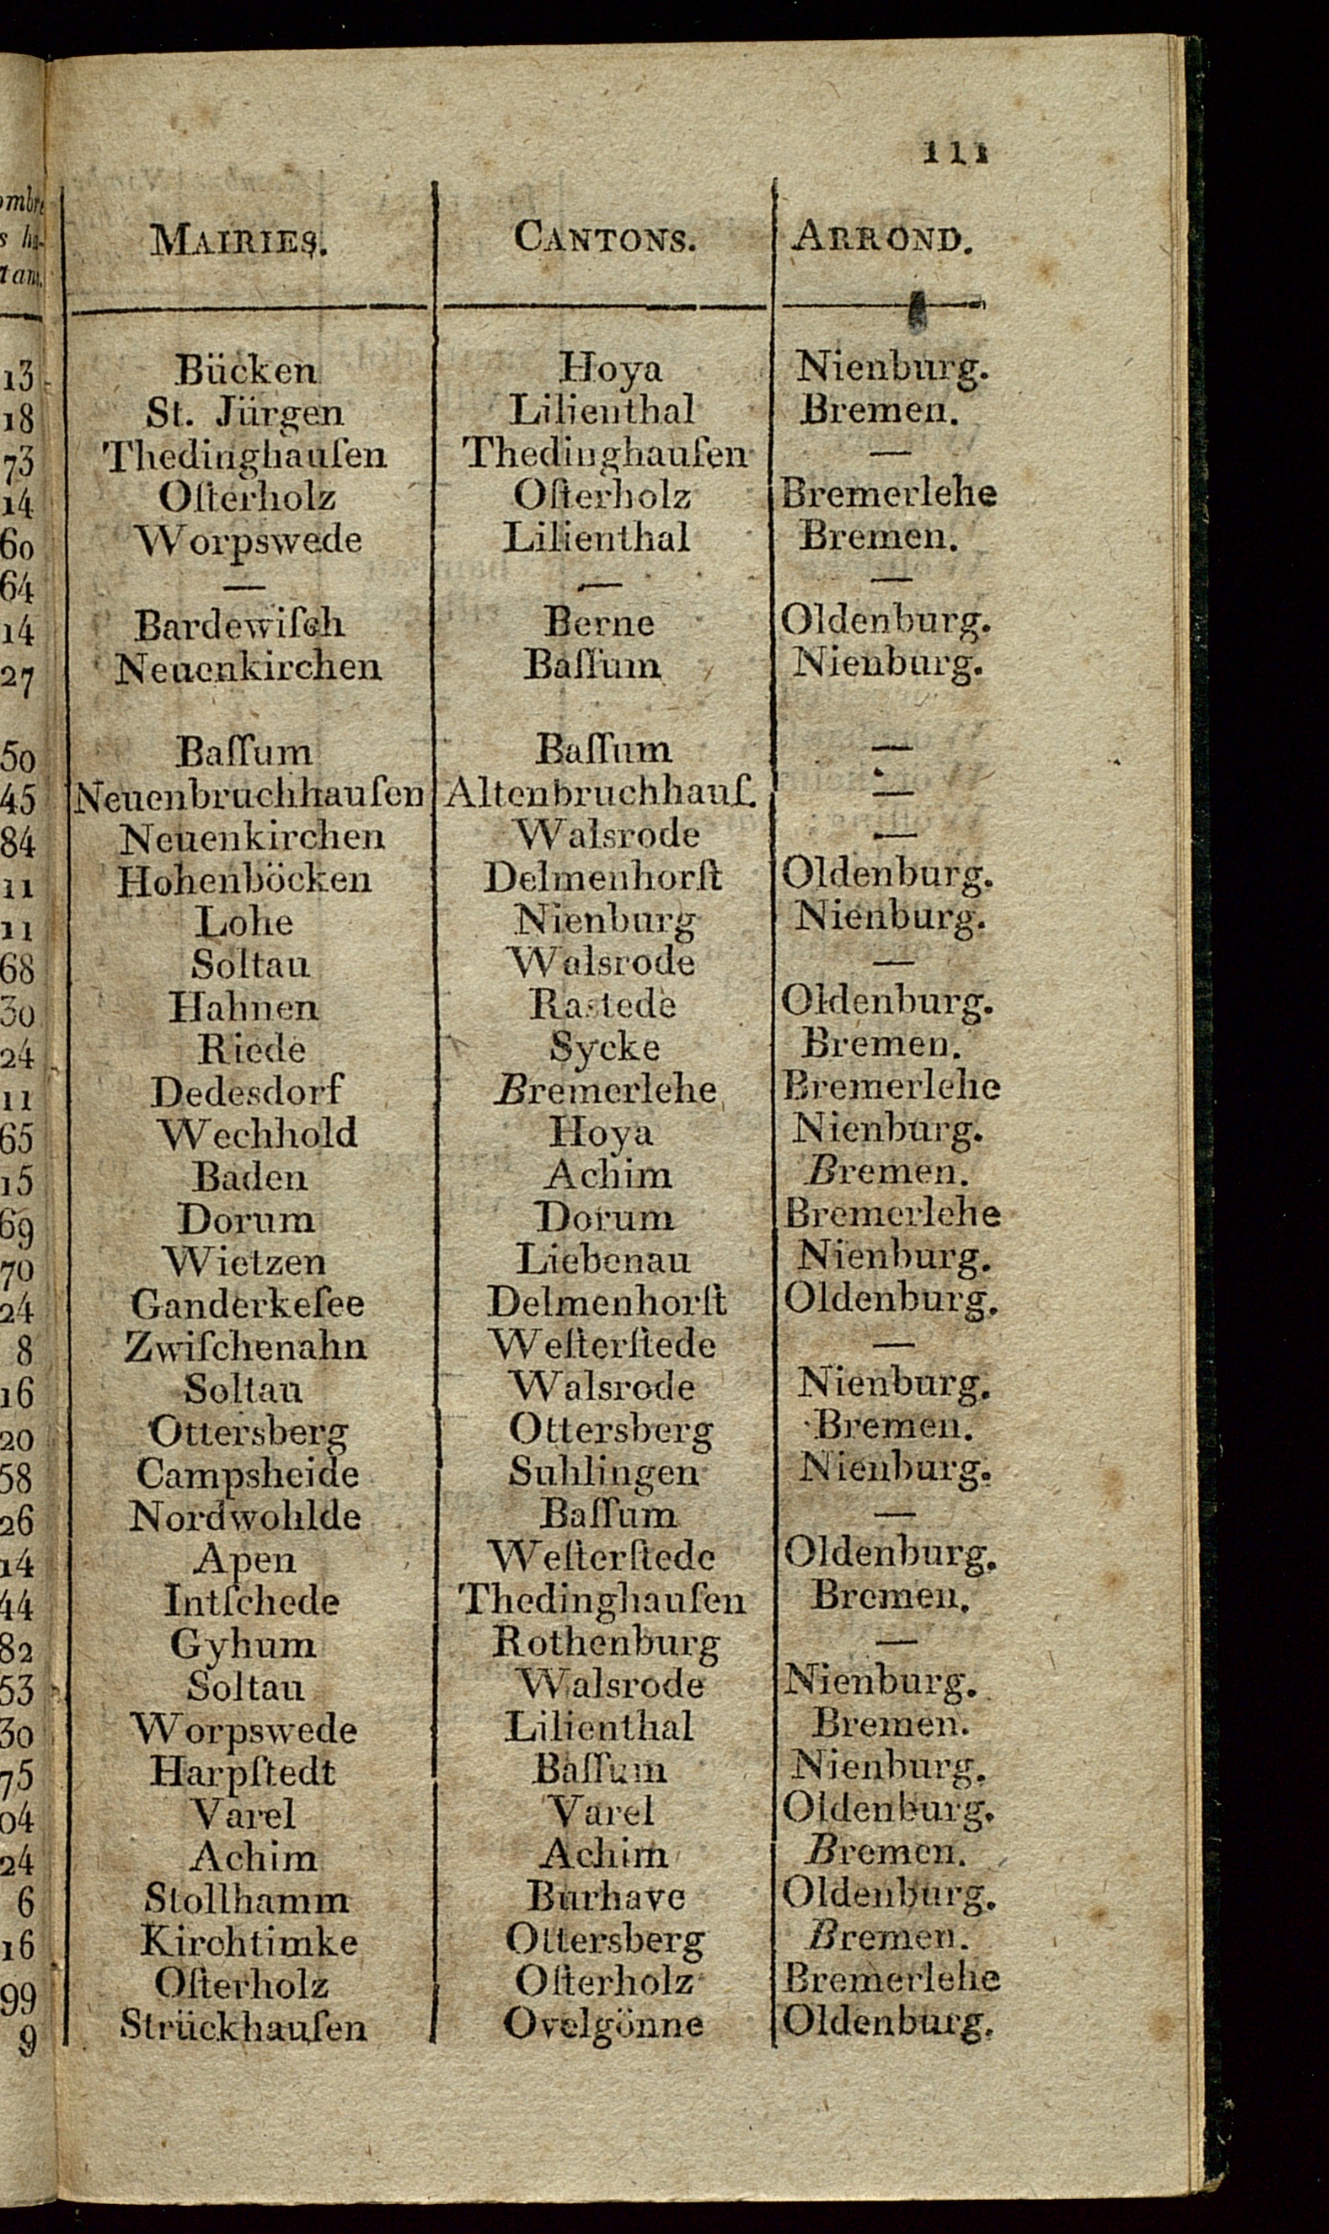 111
ombre
s ha-
tans.
MAIRIES. CANTONS. ARROND.
13 Bücken Hoya Nienburg.
18 St. Jürgen Lilienthal Bremen.
73 Thedinghauſen Thedinghauſen —
14 Oſterholz Oſterholz Bremerlehe
60 Worpswede Lilienthal Bremen.
64 — — —
14 Bardewiſch Berne Oldenburg.
27 Neuenkirchen Baſſum Nienburg.
50 Baſſum Baſſum —
45 Neuenbruchhauſen Altenbruchhauſ. —
84 Neuenkirchen Walsrode —
11 Hohenböcken Delmenhorſt Oldenburg.
11 Lohe Nienburg Nienburg.
68 Soltau Walsrode —
30 Hahnen Rastede Oldenburg.
24 Riede Sycke Bremen.
11 Dedesdorf Bremerlehe Bremerlehe
65 Wechhold Hoya Nienburg.
15 Baden Achim Bremen.
69 Dorum Dorum Bremerlehe
70 Wietzen Liebenau Nienburg.
24 Ganderkeſee Delmenhorſt Oldenburg.
8 Zwiſchenahn Weſterſtede —
16 Soltau Walsrode Nienburg.
20 Ottersberg Ottersberg Bremen.
58 Campsheide Suhlingen Nienburg.
26 Nordwohlde Baſſum —
14 Apen Weſterſtede Oldenburg.
44 Intſchede Thedinghauſen Bremen.
82 Gyhum Rothenburg —
53 Soltau Walsrode Nienburg.
30 Worpswede Lilienthal Bremen.
75 Harpſtedt Baſſum Nienburg.
04 Varel Varel Oldenburg.
24 Achim Achim Bremen.
6 Stollhamm Burhave Oldenburg.
16 Kirchtimke Ottersberg Bremen.
99 Oſterholz Oſterholz Bremerlehe
9 Strückhauſen Ovelgönne Oldenburg.